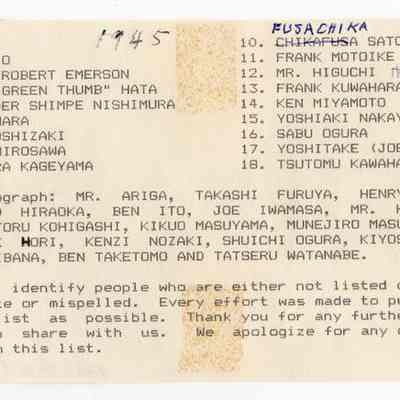 1945
FUSACHIKA
10. CHIKAFUSA SATO
O
11. FRANK MOTOIKE
ROBERT EMERSON
12. MR. HIGUCHI
GREEN THUMB" HATA
13. FRANK KUWAHARA
DER SHIMPE NISHIMURA
14. KEN MIYAMOTO
HARA
15. YOSHIAKI NAKAY
OSHIZAKI
16. SABU OGURA
HIROSAWA
17. YOSHITAKE (JOE
RA KAGEYAMA
18. TSUTOMU KAWAHA
ograph: MR. ARIGA, TAKASHI FURUYA, HENRY
O HIRAOKA, BEN ITO, JOE IWAMASA, MR. K
TORU KOHIGASHI, KIKUO MASUYAMA, MUNEJIRO MASU
K HORI, KENZI NOZAKI, SHUICHI OGURA, KIYOS
IBANA, BEN TAKETOMO AND TATSERU WATANABE.
identify people who are either not listed o
te or mispelled. Every effort was made to pu
list as possible. Thank you for any furthe
n share with us. We apologize for any o
n this list.